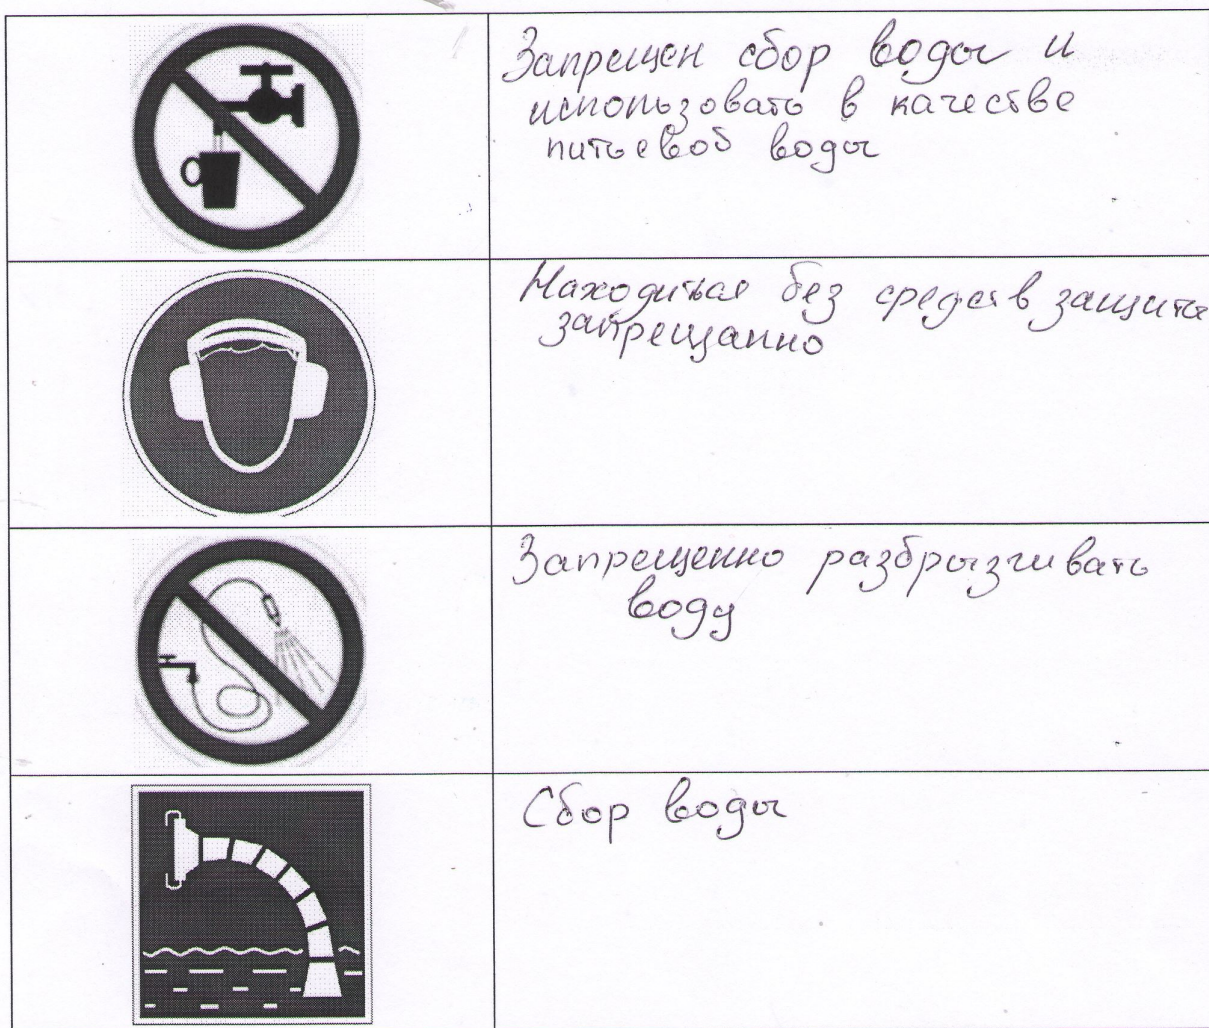 Запрещен сбор воды и
использовать в качестве
питьевой воды
Находиться без средств защиты
запрещанно
Запрещенно разбрызгивать
воду
Сбор воды